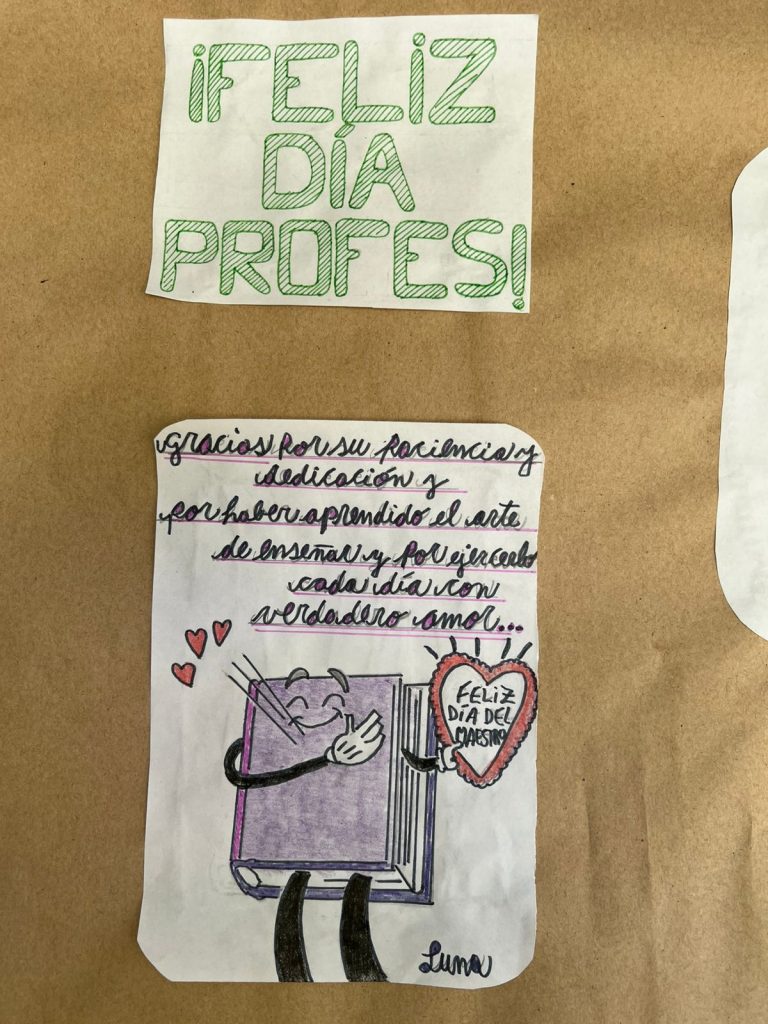 ¡FELIZ
DÍA
PROFES!
gracias por su paciencia y
dedicación y
por haber aprendido el arte
de enseñar y por ejercerlo
cada día con
verdadero amor...
FELIZ
DÍA DEL
MAESTRO
Luna